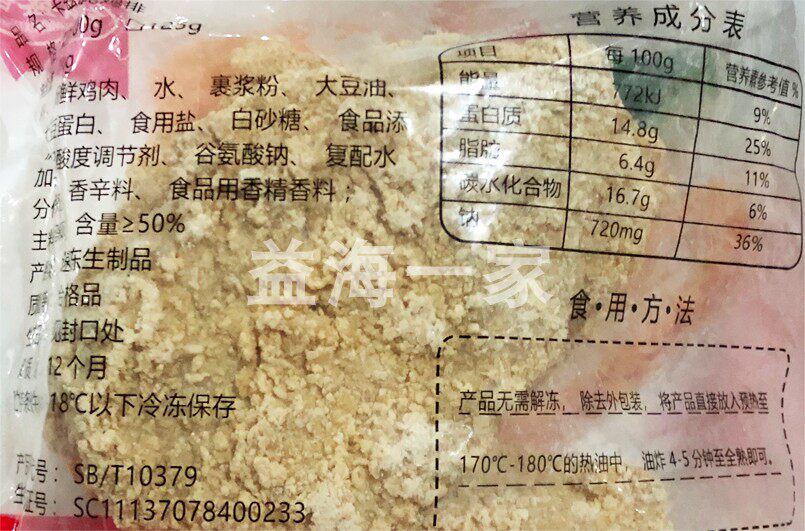 品名:
营养成分表
项目 每100g 营养素参考值%
能量 772kJ 9%
蛋白质 14.8g 25%
脂肪 6.4g 11%
碳水化合物 16.7g 6%
钠 720mg 36%
鲜鸡肉、 水、 裹浆粉、 大豆油、
蛋白、 食用盐、 白砂糖、 食品添
酸度调节剂、 谷氨酸钠、 复配水
香辛料、 食品用香精香料;
含量≥50%
冻生制品
格品
封口处
12个月
18℃以下冷冻保存
号: SB/T10379
证号: SC11137078400233
食·用·方·法
产品无需解冻, 除去外包装, 将产品直接放入预热至
170℃-180℃的热油中, 油炸4-5分钟至全熟即可。
益海一家